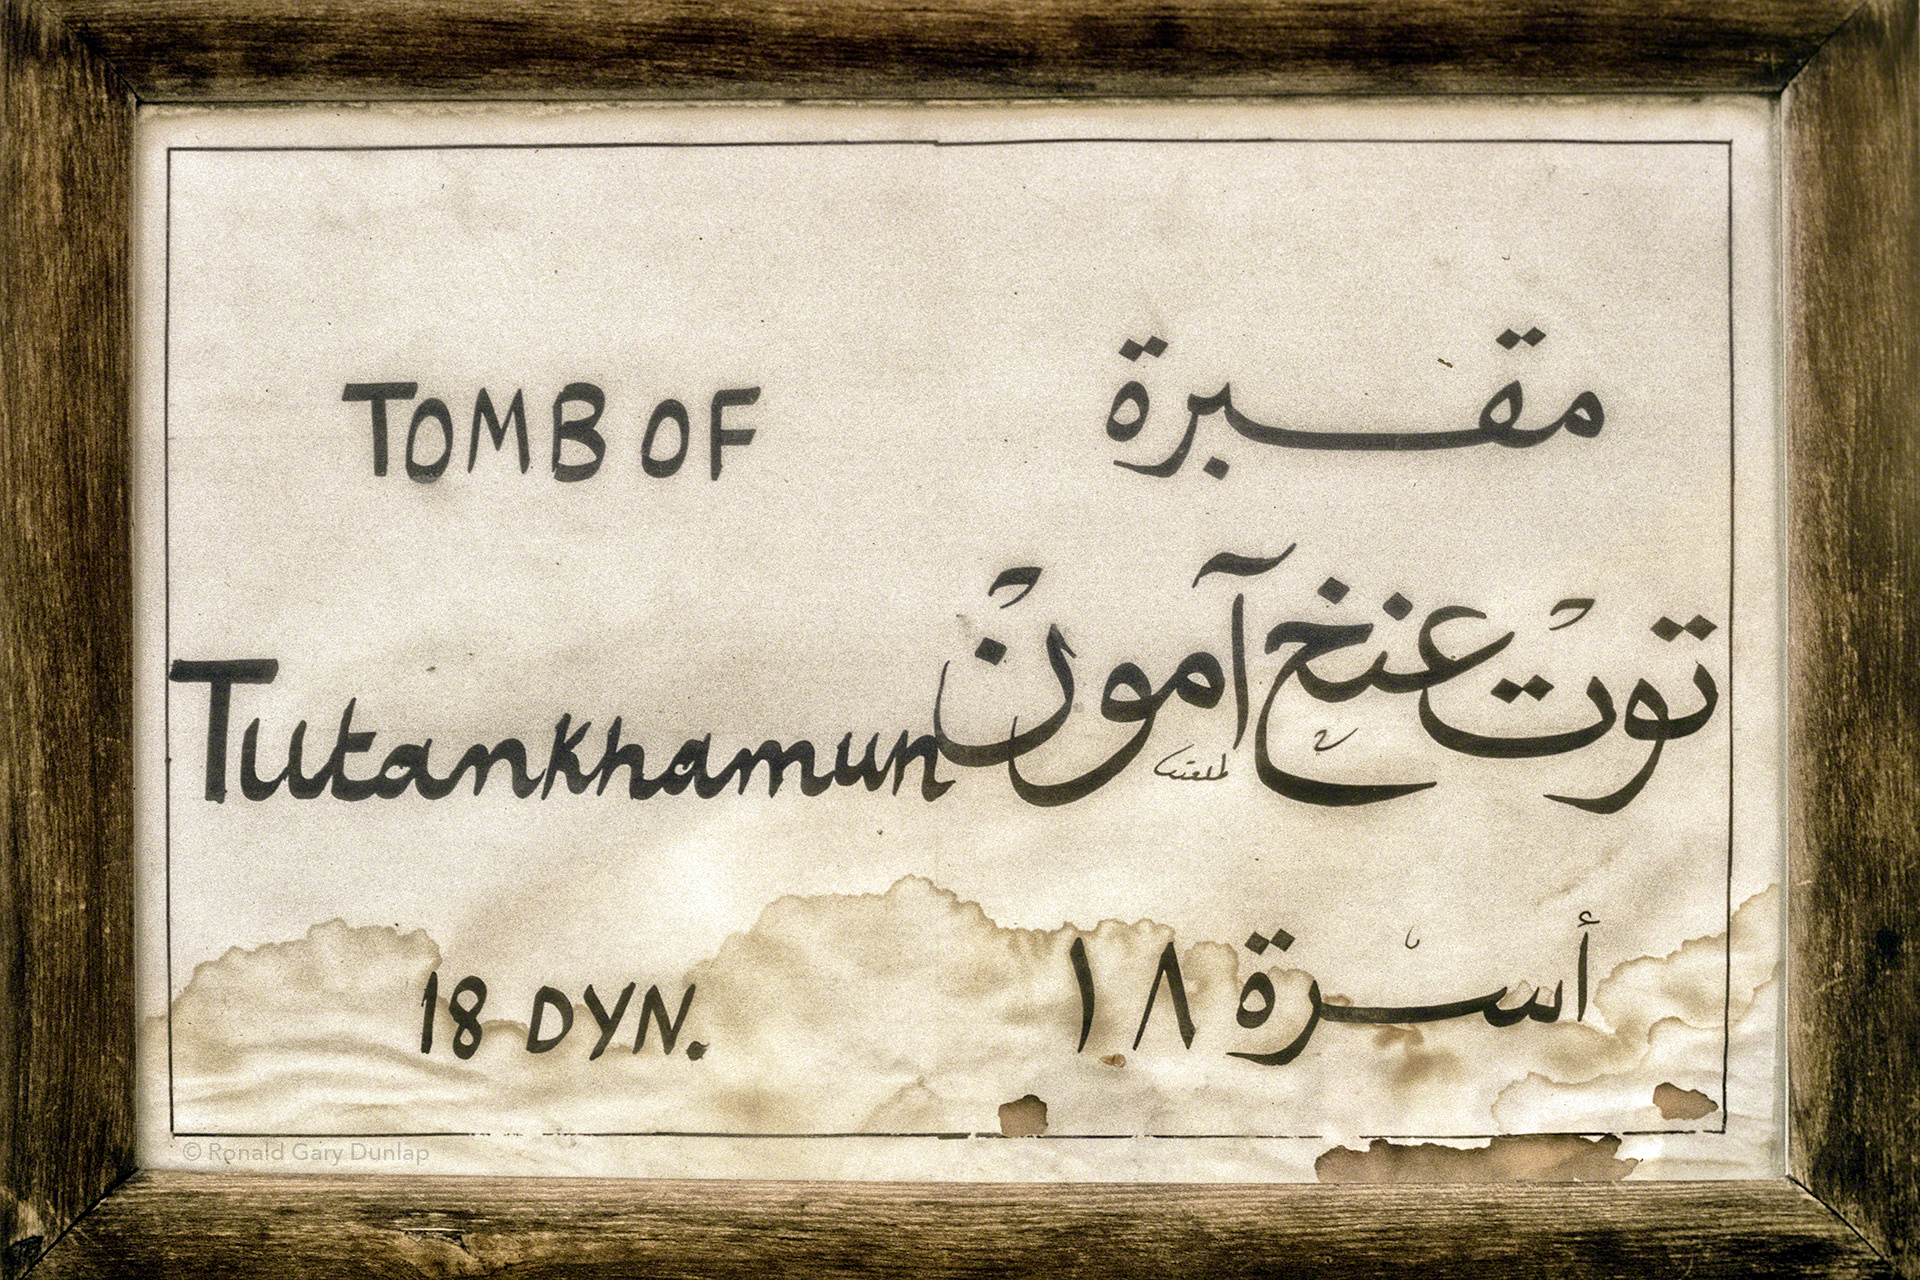 TOMB OF
مقبرة
Tutankhamun
توت عنخ آمون
18 DYN.
أسرة ١٨
© Ronald Gary Dunlap